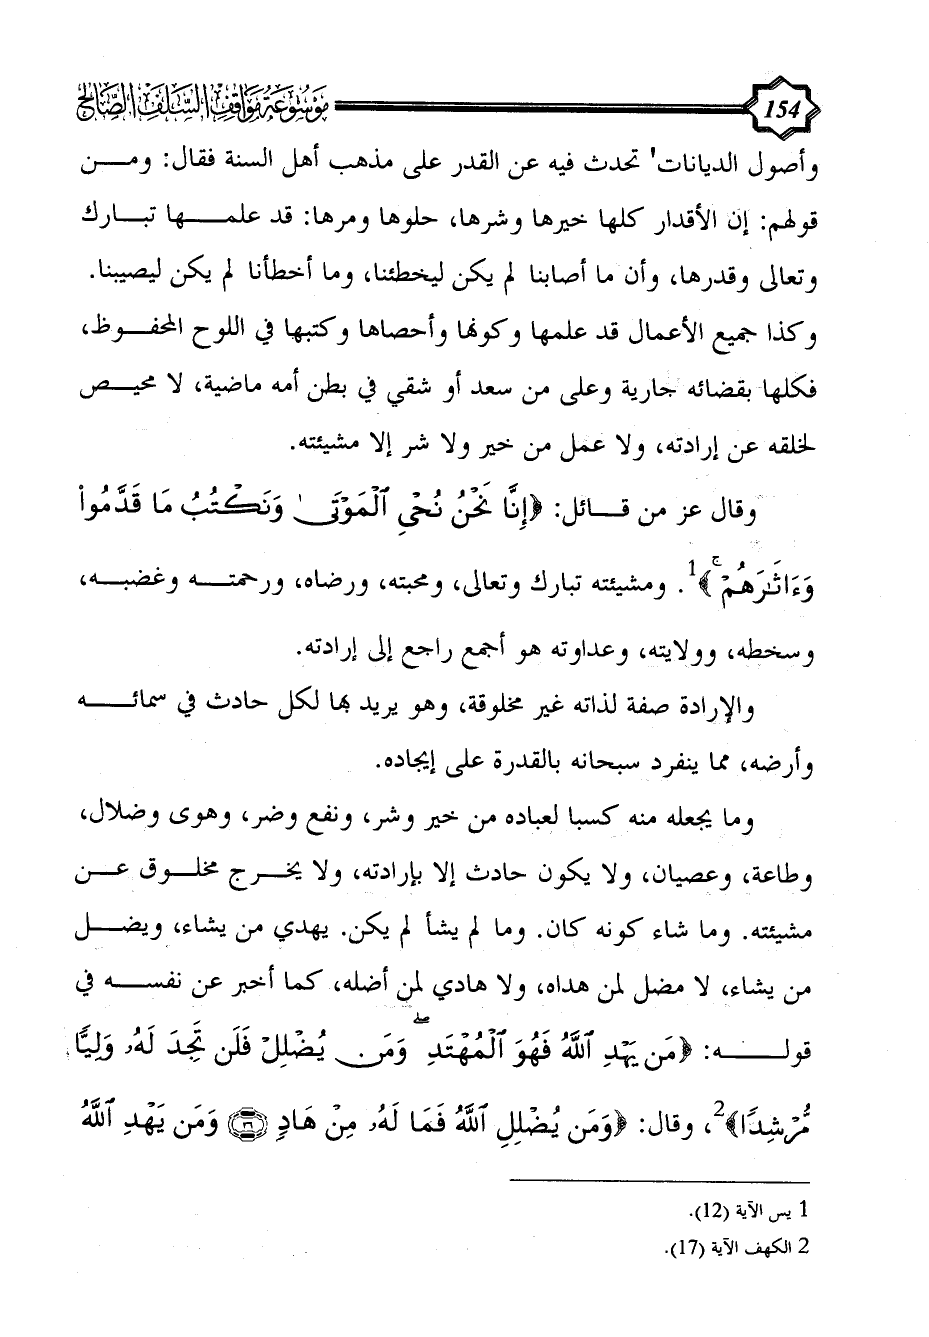 154 موسوعة مواقف السلف الصالح
وأصول الديانات' تحدث فيه عن القدر على مذهب أهل السنة فقال: ومـــن
قولهم: إن الأقدار كلها خيرها وشرها، حلوها ومرها: قد علمـــها تبـارك
وتعالى وقدرها، وأن ما أصابنا لم يكن ليخطئنا، وما أخطأنا لم يكن ليصيبنا.
وكذا جميع الأعمال قد علمها وكونها وأحصاها وكتبها في اللوح المحفـــوظ،
فكلها بقضائه جارية وعلى من سعد أو شقي في بطن أمه ماضية، لا محيـــص
لخلقه عن إرادته، ولا عمل من خير ولا شر إلا مشيئته.
وقال عز من قـــائل: ﴿إِنَّا نَحْنُ نُحْيِ ٱلْمَوْتَىٰ وَنَكْتُبُ مَا قَدَّمُوا۟
وَءَاثَـٰرَهُمْ ۚ﴾1. ومشيئته تبارك وتعالى، ومحبته، ورضاه، ورحمتـــه وغضبـــه،
وسخطه، وولايته، وعداوته هو أجمع راجع إلى إرادته.
والإرادة صفة لذاته غير مخلوقة، وهو يريد بها لكل حادث في سمائـــه
وأرضه، مما ينفرد سبحانه بالقدرة على إيجاده.
وما يجعله منه كسبا لعباده من خير وشر، ونفع وضر، وهوى وضلال،
وطاعة، وعصيان، ولا يكون حادث إلا بإرادته، ولا يخـــرج مخلـــوق عـــن
مشيئته. وما شاء كونه كان. وما لم يشأ لم يكن. يهدي من يشاء، ويضـــل
من يشاء، لا مضل لمن هداه، ولا هادي لمن أضله، كما أخبر عن نفســـه في
قولـــه: ﴿مَن يَهْدِ ٱللَّهُ فَهُوَ ٱلْمُهْتَدِ ۖ وَمَن يُضْلِلْ فَلَن تَجِدَ لَهُۥ وَلِيًّا
مُّرْشِدًا﴾2، وقال: ﴿وَمَن يُضْلِلِ ٱللَّهُ فَمَا لَهُۥ مِنْ هَادٍ ۝٣٦ وَمَن يَهْدِ ٱللَّهُ
1 يس الآية (12).
2 الكهف الآية (17).